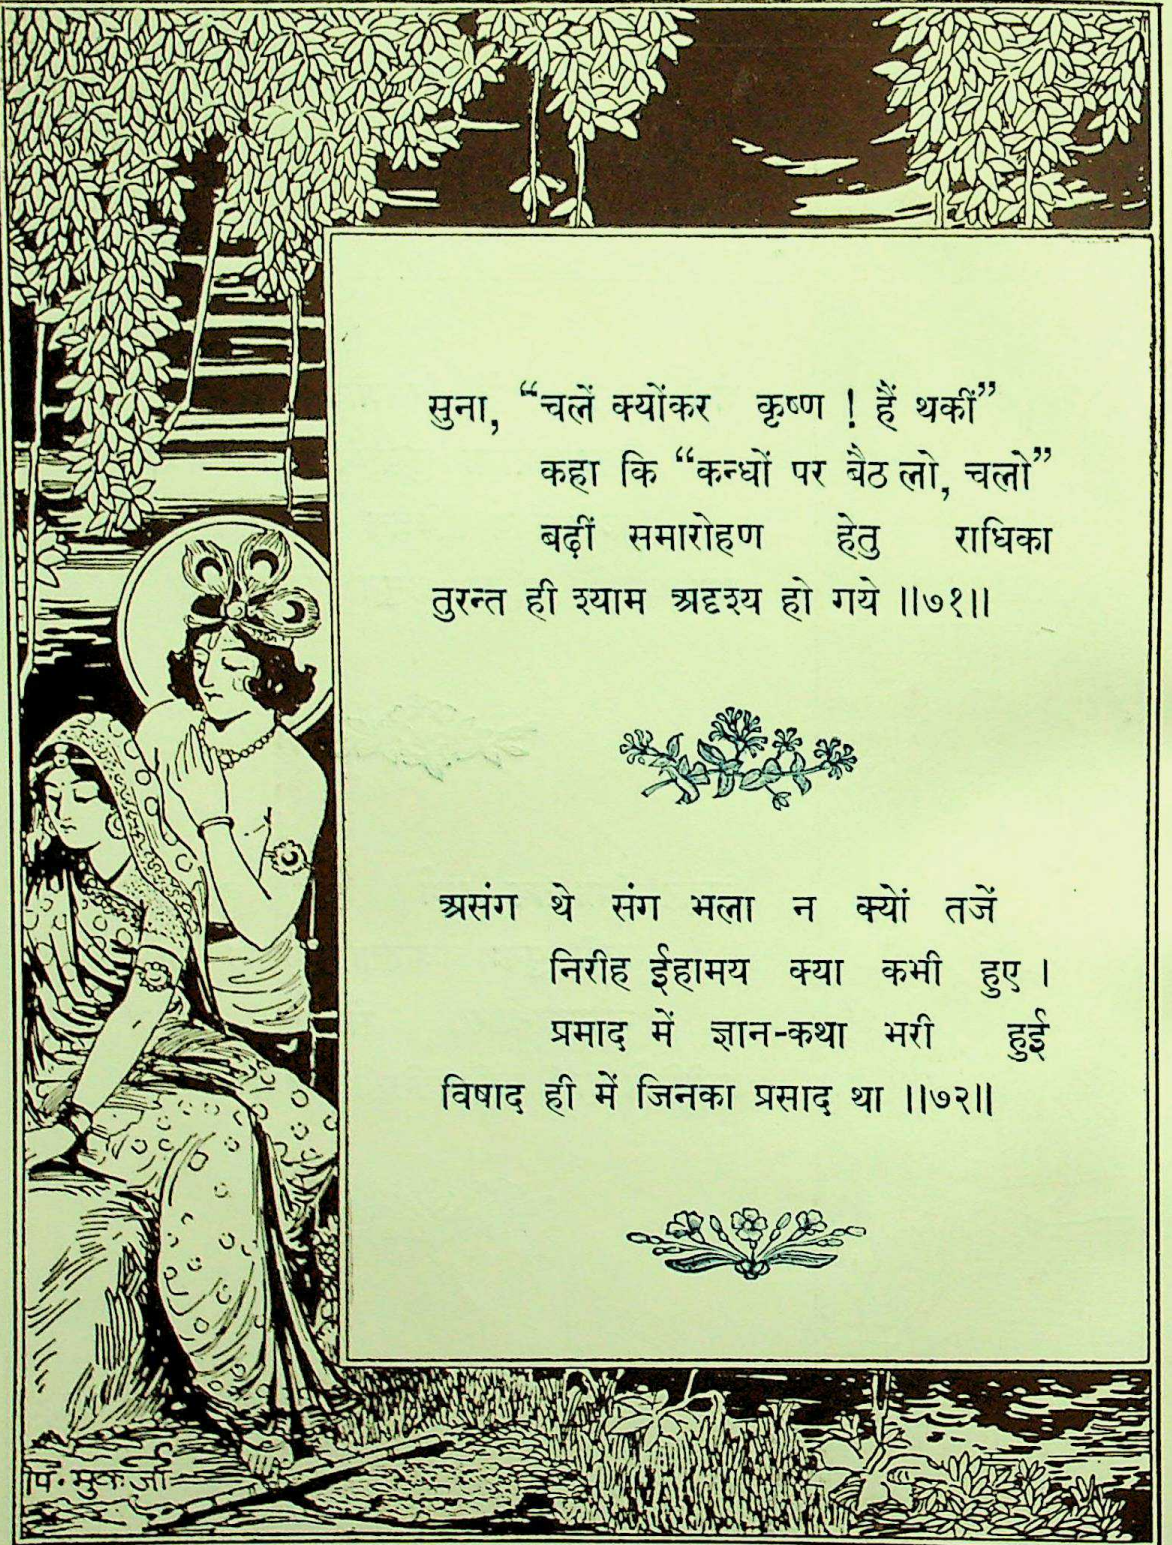 सुना, “चलें क्योंकर कृष्ण ! हैं थकीं”
कहा कि “कन्धों पर बैठ लो, चलो”
बढ़ीं समारोहण हेतु राधिका
तुरन्त ही श्याम अदृश्य हो गये ॥७१॥
असंग थे संग भला न क्यों तजें
निरीह ईहामय क्या कभी हुए ।
प्रमाद में ज्ञान-कथा भरी हुई
विषाद ही में जिनका प्रसाद था ॥७२॥